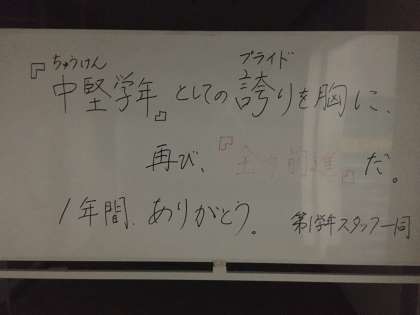 『中堅学年』としての誇りを胸に、
ちゅうけん プライド
再び、『全力前進』だ。
1年間、ありがとう。 第1学年スタッフ一同